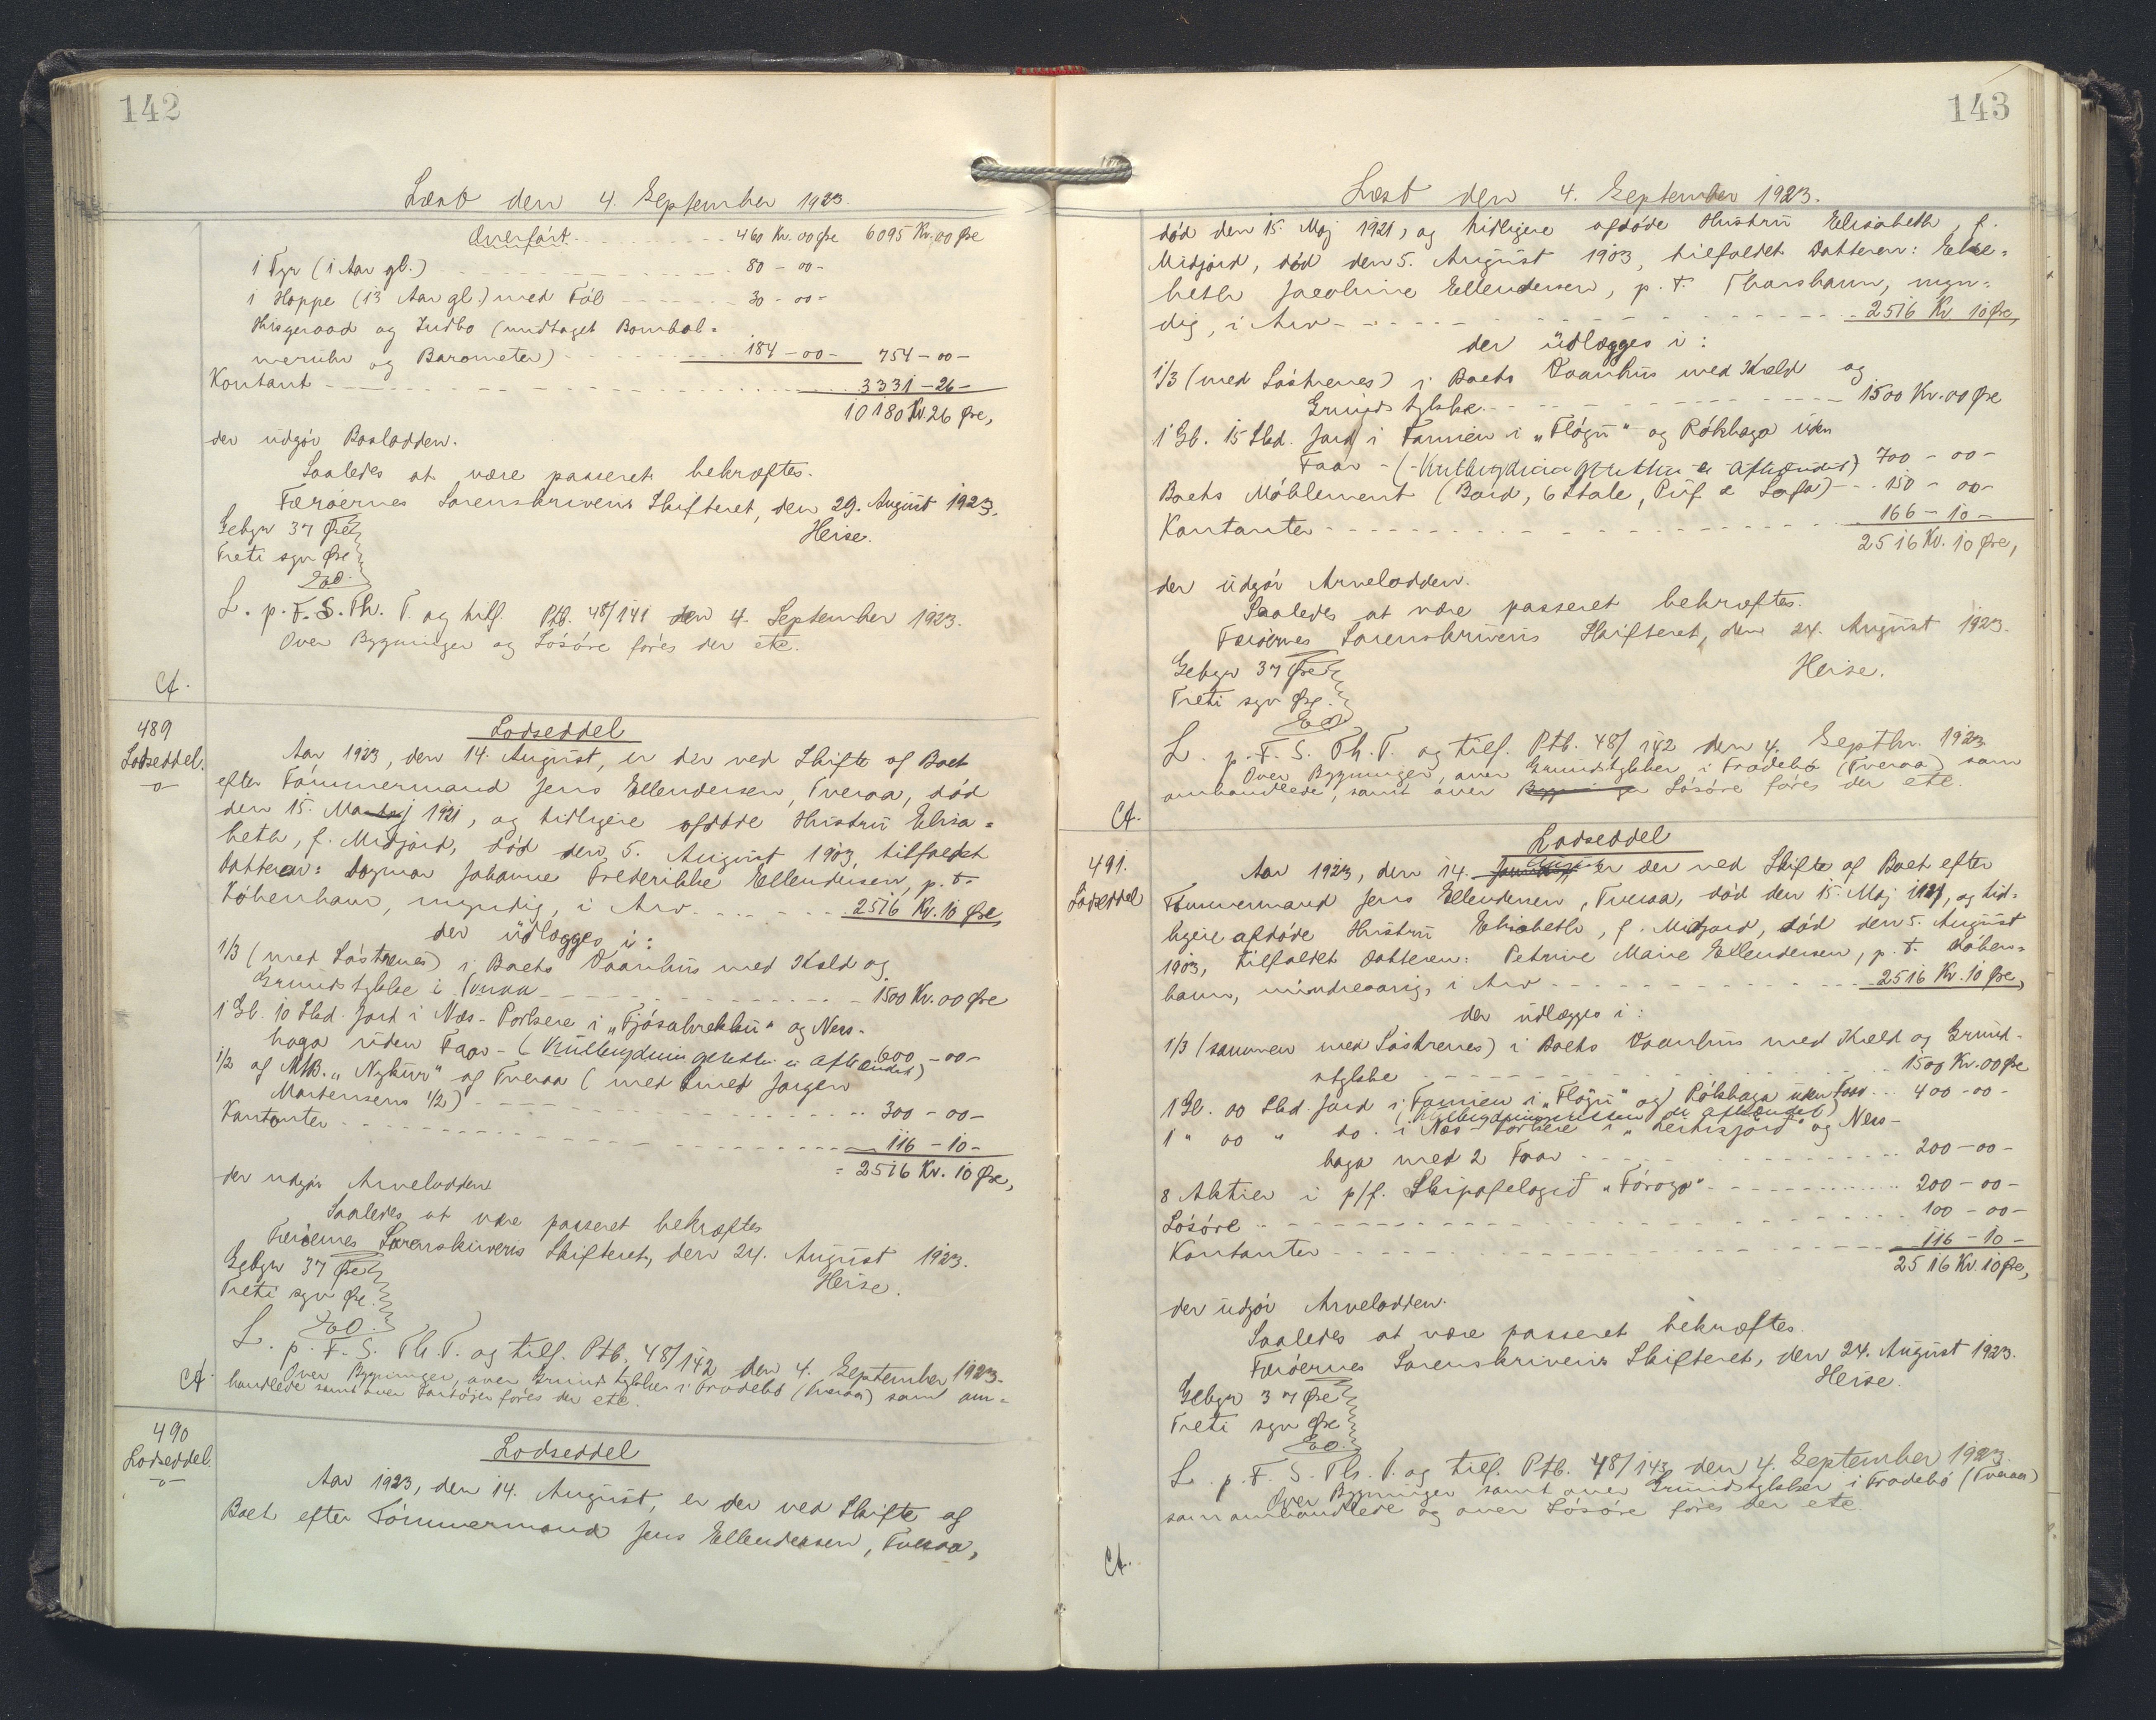 142
Læst den 4. September 1923.
Overført 460 Kr. 00 Øre 6095 Kr. 00 Øre
1 Tyr (1 Aar gl.) 80 - 00 -
1 Hoppe (13 Aar gl.) med Føl 30 - 00 -
Husgeraad og Indbo (undtaget Bornhol-
merühr og Barometer) 184 - 00 - 754 - 00 -
Kontant 3331 - 26 -
10180 Kr. 26 Øre,
der udgør Boslodden.
Saaledes at være passeret bekræftes.
Færøernes Sorenskriveris Skifteret, den 29. August 1923.
Gebyr 37 Øre Heise.
Treti syv Øre
L. p. F. S. Th. T. og tilf. Ptb. 48/141 den 4. September 1923.
Over Bygninger og Løsøre føres der etc.
489
Lodseddel.
Lodseddel
Aar 1923, den 14. August, er der ved Skifte af Boet
efter Tømmermand Jens Ellendersen, Tveraa, død
den 15. Maj 1921, og tidligere afdøde Hustru Elisa-
beth, f. Midjord, død den 5. August 1903, tilfaldet
Datteren: Dagmar Johanne Frederikke Ellendersen, p. t.
København, myndig, i Arv 2516 Kr. 10 Øre,
der udlægges i:
1/3 (med Søstrenes) i Boets Vaanhus med Kæld og
Grundstykke i Tveraa 1500 Kr. 00 Øre
1 Gl. 10 Skd. Jord i Næs-Porkere i „Fjósabrekku" og Nes-
haga uden Faar - (Kulbrydningsretten er afhændet) 600 - 00 -
1/2 af Mtb. „Nykur" af Tveraa (med Smed Jørgen
Mortensens 1/2) 300 - 00 -
Kontanter 116 - 10 -
2516 Kr. 10 Øre,
der udgør Arvelodden.
Saaledes at være passeret bekræftes
Færøernes Sorenskriveris Skifteret, den 24. August 1923.
Gebyr 37 Øre Heise.
Treti syv Øre
L. p. F. S. Th. T. og tilf. Ptb. 48/142 den 4. September 1923.
Over Bygninger, over Grundstykker i Frodebø (Tveraa) samt om-
handlede samt over Fartøjer føres der etc.
490
Lodseddel.
Lodseddel
Aar 1923, den 14. August, er der ved Skifte af
Boet efter Tømmermand Jens Ellendersen, Tveraa,
143
Læst den 4. September 1923.
død den 15. Maj 1921, og tidligere afdøde Hustru Elisabeth, f.
Midjord, død den 5. August 1903, tilfaldet Datteren:
beth Jacobine Ellendersen, p. t. Thorshavn, myn-
dig, i Arv 2516 Kr 10 Øre,
der udlægges i:
1/3 (med Søstrenes) i Boets Vaanhus med Kæld og
Grundstykke 1500 Kr. 00 Øre
1 Gl. 15 Skd. Jord i Famien i „Fløgu" og Rókhaga uden
Faar - (Kulbrydningsretten er afhændet) 700 - 00 -
Boets Møblement (Bord, 6 Stole, Puf & Sofa) 150 - 00 -
Kontanter 166 - 10 -
2516 Kr. 10 Øre,
der udgør Arvelodden.
Saaledes at være passeret bekræftes.
Færøernes Sorenskriveris Skifteret, den 24. August 1923.
Gebyr 37 Øre Heise.
Treti syv Øre.
L. p. F. S. Th. T. og tilf. Ptb. 48/142 den 4. Septbr. 1923
Over Bygninger, over Grundstykker i Frodebø (Tveraa) som
omhandlede, samt over Løsøre føres der etc.
491.
Lodseddel
Lodseddel
Aar 1923, den 14. August er der ved Skifte af Boet efter
Tømmermand Jens Ellendersen, Tveraa, død den 15. Maj 1921, og tid-
ligere afdøde Hustru Elisabeth, f. Midjord, død den 5. August
1903, tilfaldet Datteren: Petrine Marie Ellendersen, p. t. Køben-
havn, mindreaarig, i Arv 2516 Kr. 10 Øre,
der udlægges i:
1/3 (sammen med Søstrenes) i Boets Vaanhus med Kæld og Grund-
stykke 1500 Kr. 00 Øre
1 Gl. 00 Skd. Jord i Famien i „Fløgu" og Rókhaga uden Faar 400 - 00 -
(Kulbrydningsretten er afhændet)
1 " 00 " do. i Næs-Porkere i og Nes-
haga med 2 Faar 200 - 00 -
8 Aktier i p/f. Skipafelagið „Føroya" 200 - 00 -
Løsøre 100 - 00 -
Kontanter 116 - 10 -
2516 Kr. 10 Øre,
der udgør Arvelodden.
Saaledes at være passeret bekræftes.
Færøernes Sorenskriveris Skifteret, den 24. August 1923.
Gebyr 37 Øre Heise.
Treti syv Øre
L. p. F. S. Th. T. og tilf. Ptb. 48/143 den 4. September 1923.
Over Bygninger samt over Grundstykker i Frodebø (Tveraa)
som omhandlede og over Løsøre føres der etc.